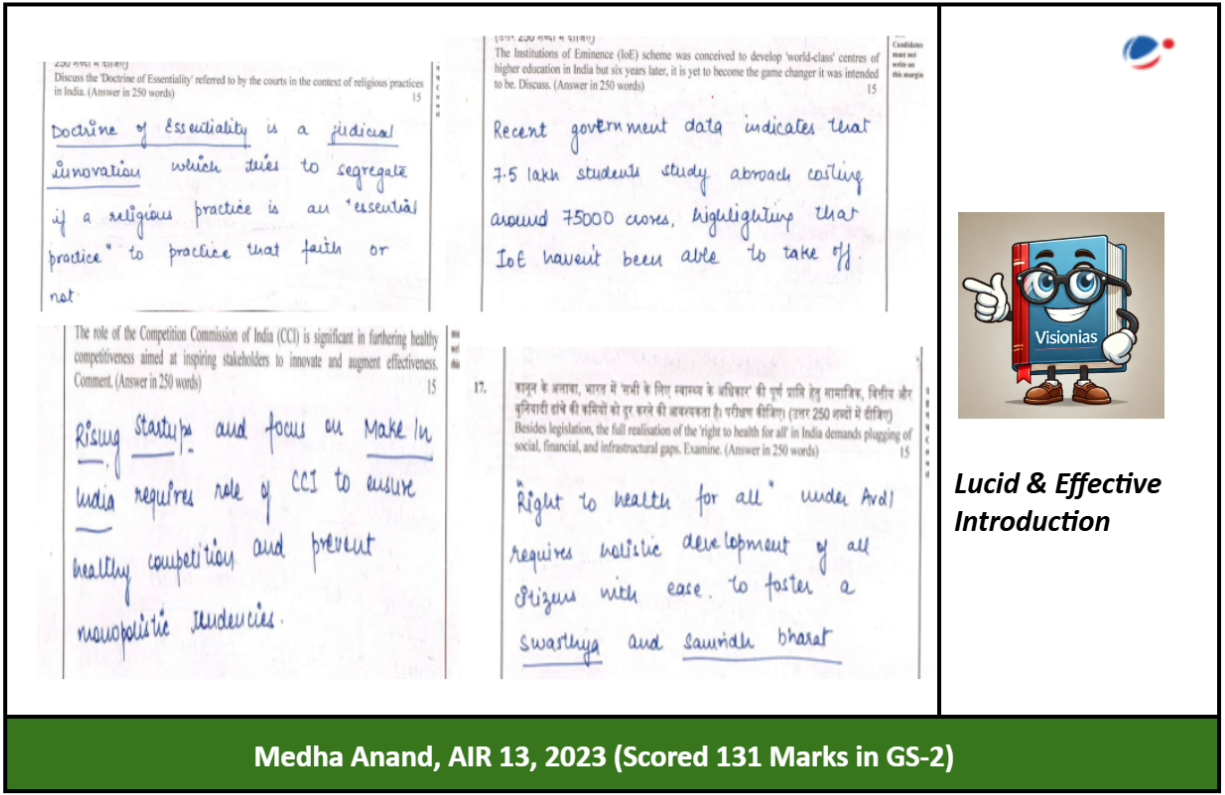 250 शब्दों में दीजिए)
Discuss the 'Doctrine of Essentiality' referred to by the courts in the context of religious practices
in India. (Answer in 250 words)
15
Doctrine of Essentiality is a judicial
innovation which tries to segregate
if a religious practice is an "essential
practice" to practice that faith or
not.
(उत्तर 250 शब्दों में दीजिए)
The Institutions of Eminence (IoE) scheme was conceived to develop 'world-class' centres of
higher education in India but six years later, it is yet to become the game changer it was intended
to be. Discuss. (Answer in 250 words)
15
Candidates
must not
write on
this margin
Recent government data indicates that
7.5 lakh students study abroad costing
around 75000 crores, highlighting that
IoE haven't been able to take off.
The role of the Competition Commission of India (CCI) is significant in furthering healthy
competitiveness aimed at inspiring stakeholders to innovate and augment effectiveness.
Comment. (Answer in 250 words)
15
Rising Startups and focus on Make In
India requires role of CCI to ensure
healthy competition and prevent
monopolistic tendencies.
17. कानून के अलावा, भारत में 'सभी के लिए स्वास्थ्य के अधिकार' की पूर्ण प्राप्ति हेतु सामाजिक, वित्तीय और
बुनियादी ढांचे की कमियों को दूर करने की आवश्यकता है। परीक्षण कीजिए। (उत्तर 250 शब्दों में दीजिए)
Besides legislation, the full realisation of the 'right to health for all' in India demands plugging of
social, financial, and infrastructural gaps. Examine. (Answer in 250 words)
15
"Right to health for all" under Art21
requires holistic development of all
citizens with ease. to foster a
swasthya and samridh bharat
Visionias
Lucid & Effective
Introduction
Medha Anand, AIR 13, 2023 (Scored 131 Marks in GS-2)